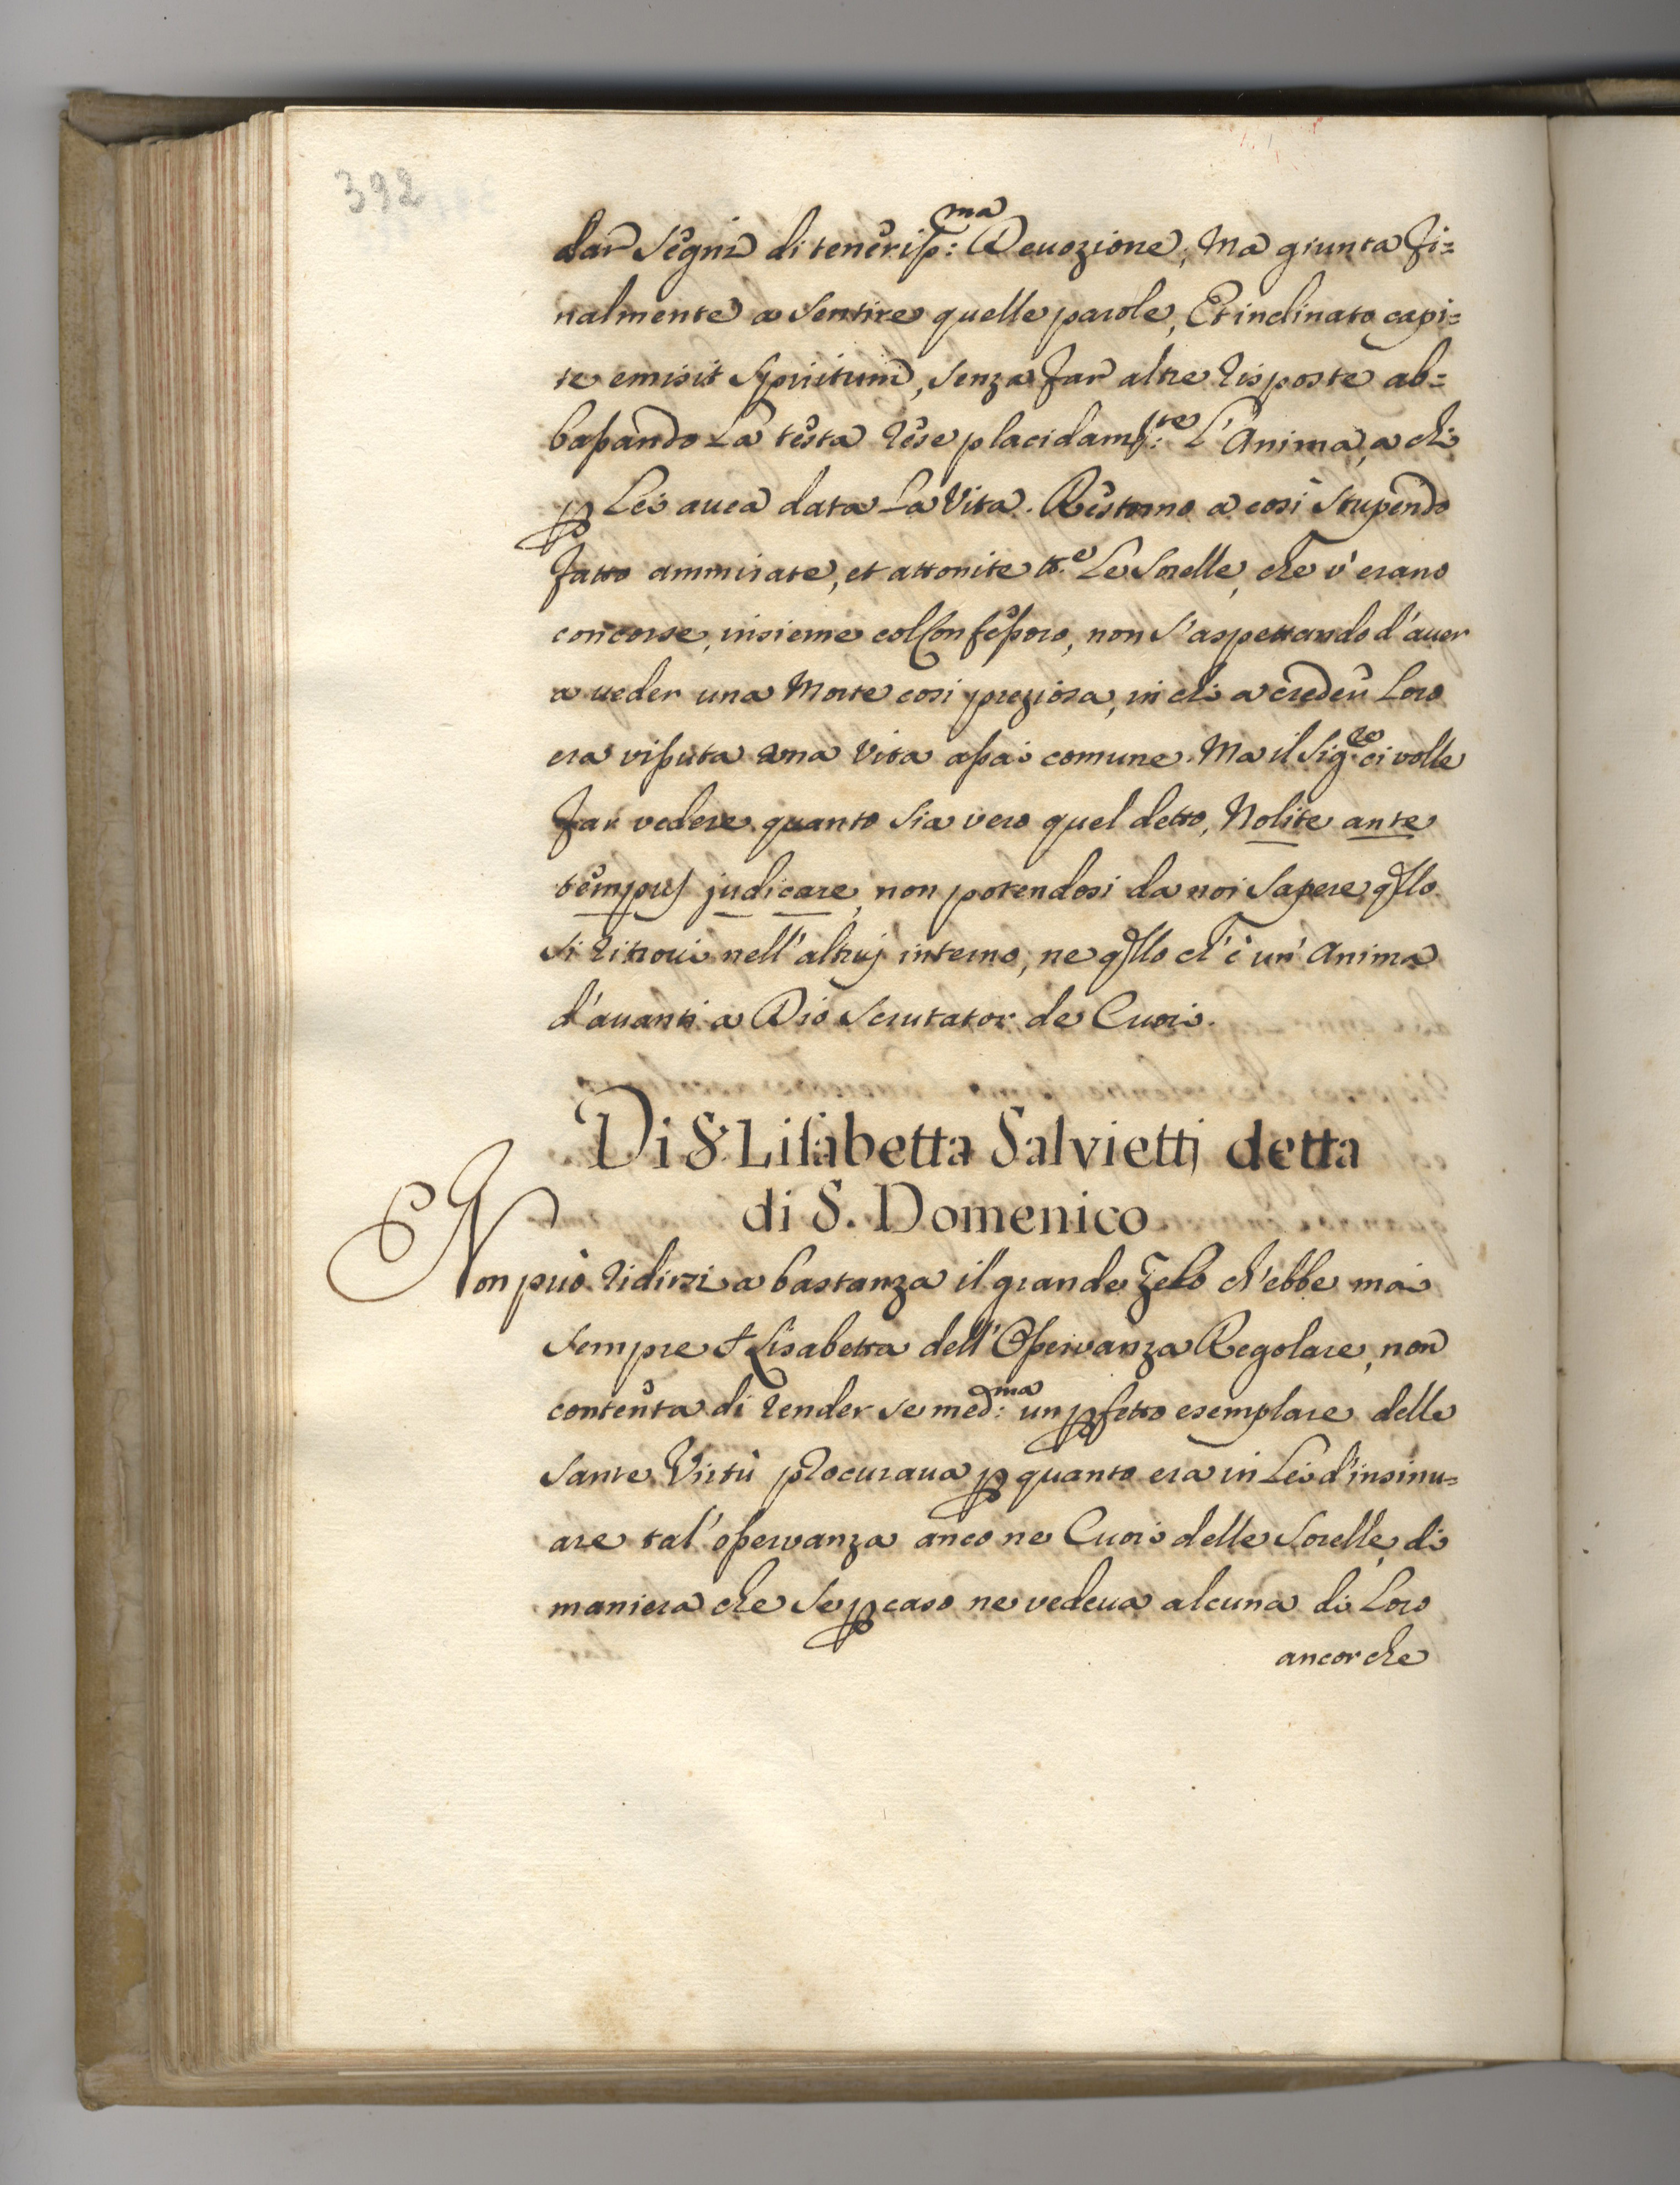 392
dar Segni di teneriss:ma Deuozione, Ma giunta fi=
nalmente a Sentire quelle parole, Et inclinato capi=
te emisit Spiritum, Senza far altre risposte ab=
bassando La testa rese placidam:te L'Anima, a chi
p Lei auea data La Vita. Restorno a cosi Stupendo
fatto ammirate, et attonite tt.e Le Sorelle, che v'erano
concorse, insieme col Confessoro, non S'aspettando d'auer
a ueder una Morte cosi preziosa, in chi a creder Loro
era vissuta una Vita assai comune. Ma il Sig.re ci volle
far vedere quanto Sia vero quel detto, Nolite ante
tempus judicare, non potendosi da noi Sapere qllo
Si ritroui nell'altruj interno, ne qllo ch'è un'Anima
d'auanti a Dio Scrutator de Cuori.
Di S. Lisabetta Salvietti detta
di S. Domenico
Non può ridirsi a bastanza il grande zelo ch'ebbe mai
Sempre S. Lisabetta dell'Osservanza Regolare, non
contenta di render se med:ma un pfetto esemplare delle
Sante Virtù procuraua p quanto era in Lei d'insinu=
are tal'osservanza anco ne Cuori delle Sorelle, di
maniera che Se p caso ne vedeua alcuna di Loro
ancorche